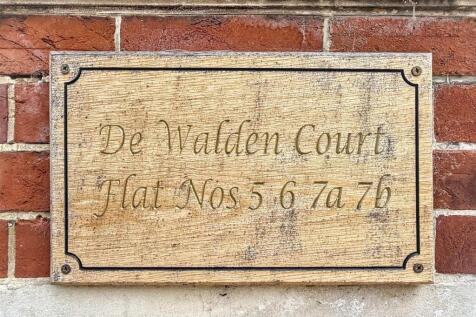 De Walden Court
Flat Nos 5 6 7a 7b